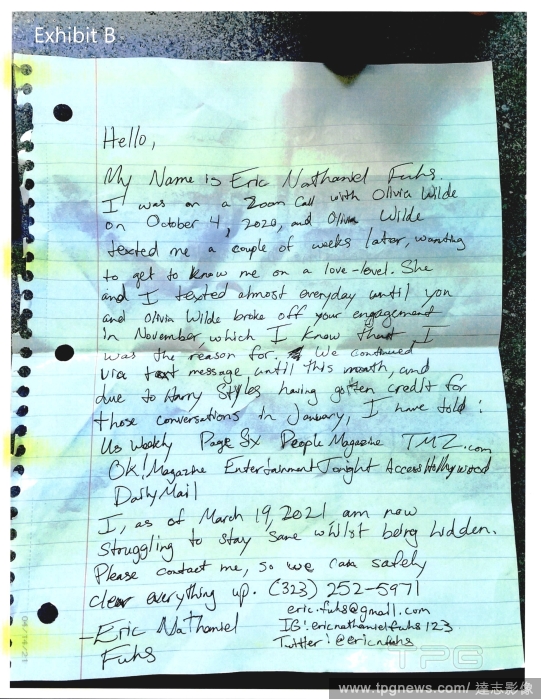 Exhibit B
Hello,
My Name is Eric Nathaniel Fuhs.
I was on a Zoom Call with Olivia Wilde
on October 4, 2020, and Olivia Wilde
texted me a couple of weeks later, wanting
to get to know me on a love-level. She
and I texted almost everyday until you
and Olivia Wilde broke off your engagement
in November, which I know that I
was the reason for. We continued
via text message until this month, and
due to Harry Styles having gotten credit for
those conversations in January, I have told:
Us Weekly Page Six People Magazine TMZ.com
OK! Magazine Entertainment Tonight Access Hollywood
DailyMail
I, as of March 19, 2021 am now
struggling to stay sane whilst being hidden.
Please contact me, so we can safely
clear everything up. (323) 252-5971
eric.fuhs@gmail.com
-Eric Nathaniel IG: ericnathanielfuhs123
Fuhs Twitter: @ericnfuhs
TPG
www.tpgnews.com / 達志影像